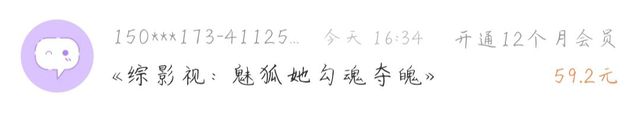 150***173-41125... 今天 16:34 开通12个月会员
《综影视：魅狐她勾魂夺魄》 59.2元